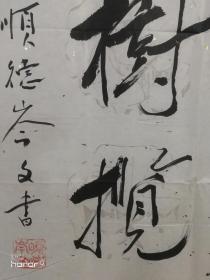 樹攬
順德岑文書
honor